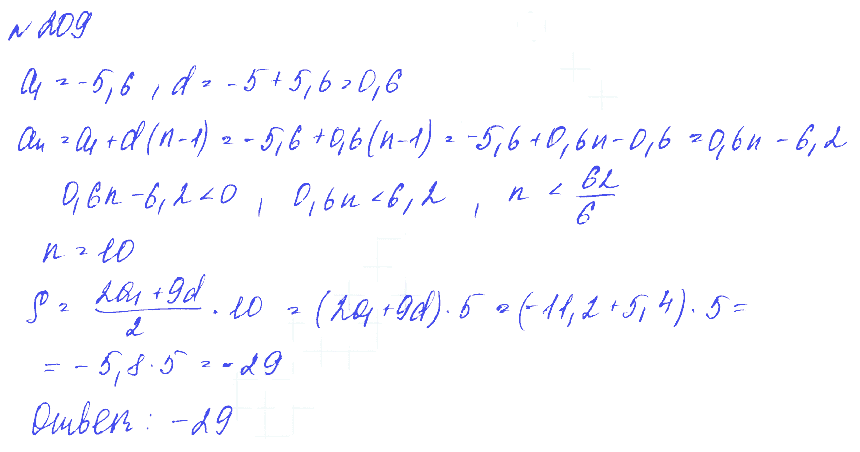 № 209
a₁ = -5,6 , d = -5 + 5,6 = 0,6
aₙ = a₁ + d(n-1) = -5,6 + 0,6(n-1) = -5,6 + 0,6n - 0,6 = 0,6n - 6,2
0,6n - 6,2 < 0 , 0,6n < 6,2 , n < 62/6
n = 10
S = (2a₁ + 9d)/2 · 10 = (2a₁ + 9d) · 5 = (-11,2 + 5,4) · 5 =
= -5,8 · 5 = -29
Ответ: -29